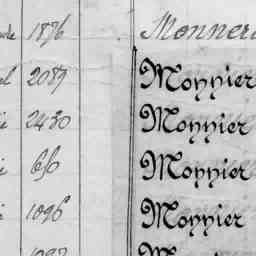 1876 Monner
2089 Monnier
2430 Monnier
650 Monnier
1096 Monnier